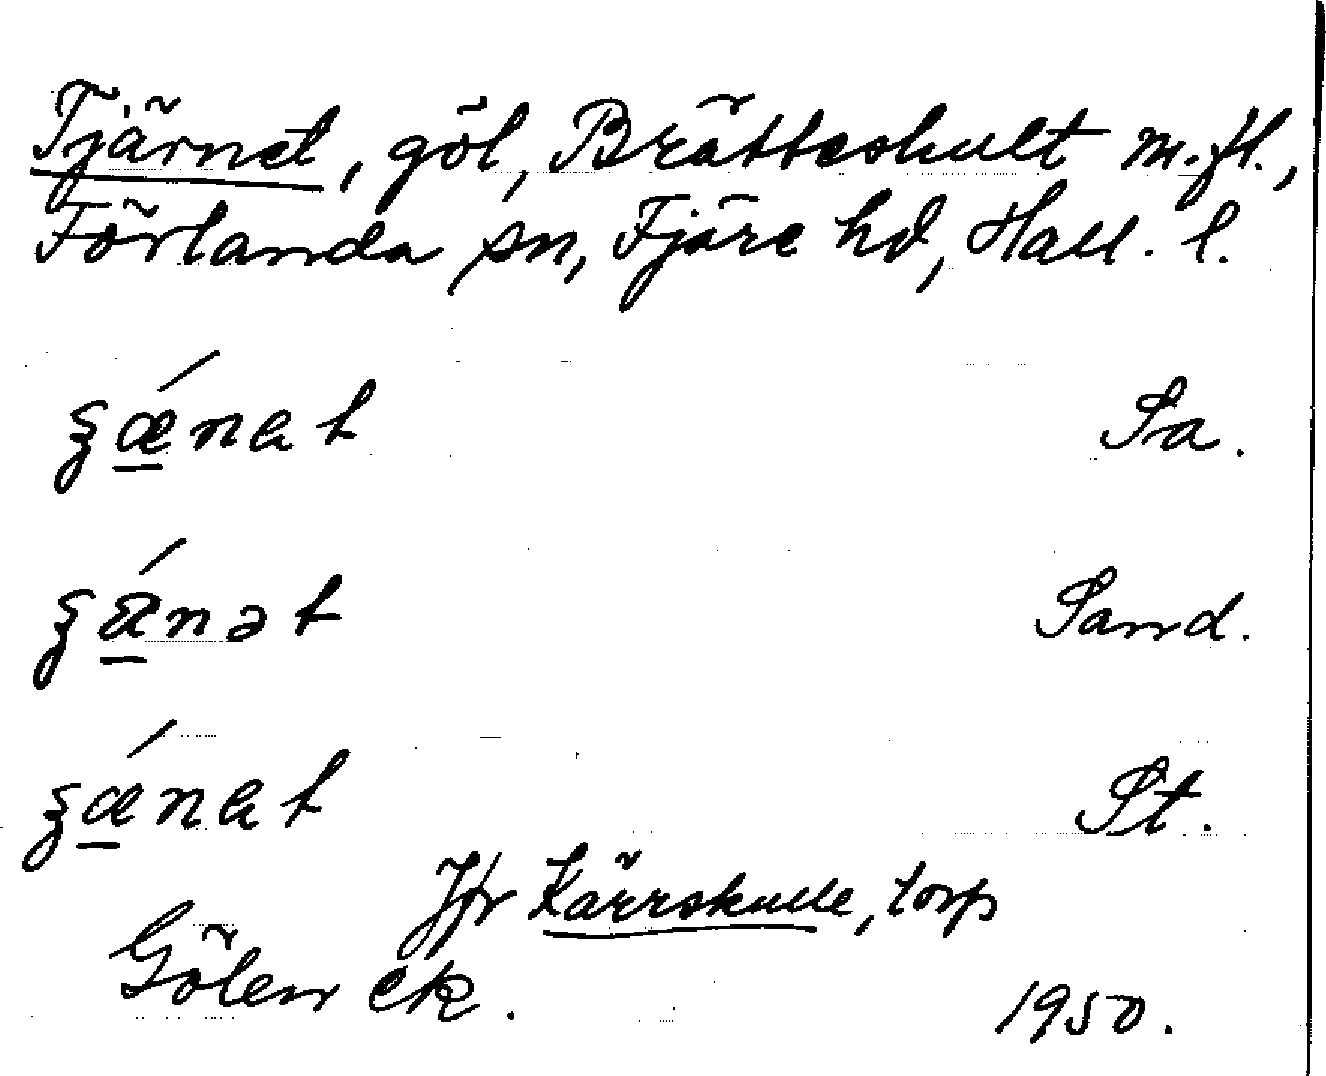 Tjärnet, göl, Brätteshult m.fl.,
Förlanda sn, Fjäre hd, Hall. l.
ʒǽnat Sa.
ʒánət Sand.
ʒǽnat St.
Jfr Kärrskulle, torp
Gölen ek. 1950.